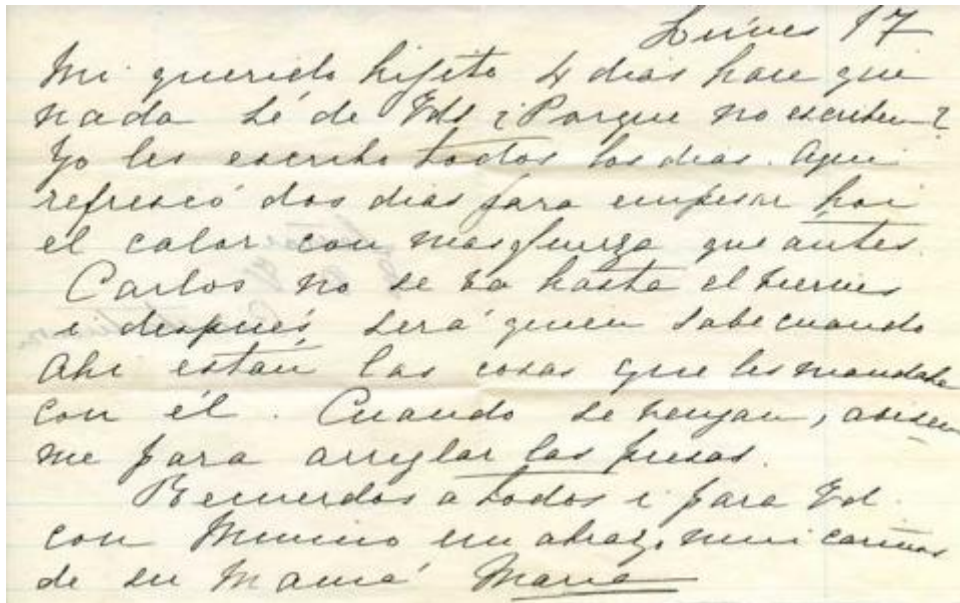 Lunes 17
Mi querido hijito 4 dias hace que
nada sé de Vds ¿Porque no escriben?
Yo les escribo todos los dias. Aqui
refrescó dos dias para empesar hoi
el calor con mas fuerza que antes.
Carlos no se va hasta el viernes
i después será quien sabe cuando
Ahi están las cosas que les mandaba
con él. Cuando se vengan, avisen
me para arreglar las piesas.
Recuerdos a todos i para Vd.
con Mimino un abrazo mui cariños
de su Mamá Maria